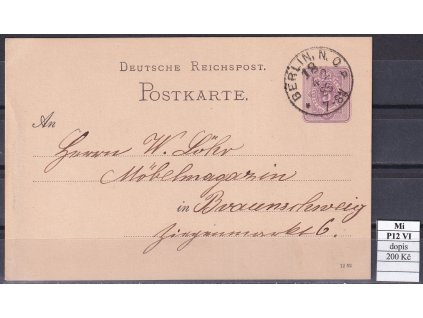 DEUTSCHE REICHSPOST.
POSTKARTE.
BERLIN, N.O.P
18
7-8N
An
Herrn W. Löhr
Möbelmagazin
in Braunschweig
Ziegenmarkt 6.
12 82
Mi
P12 VI
dopis
200 Kč